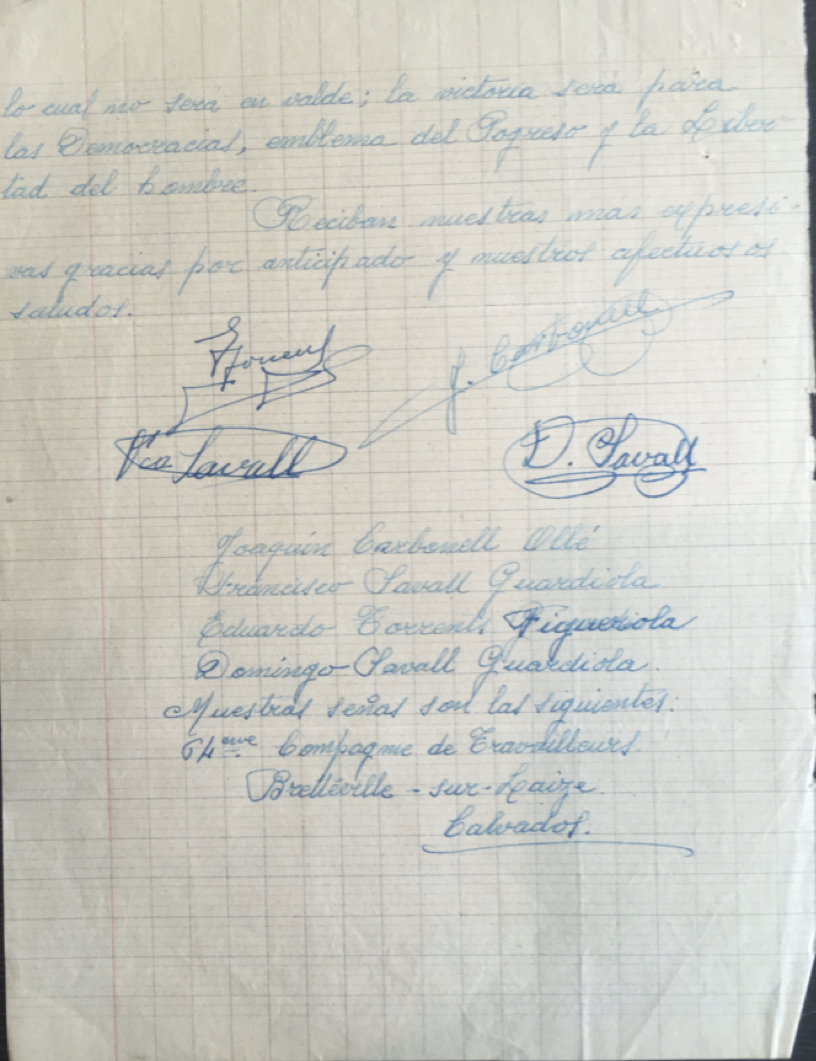 lo cual no será en valde; la victoria será para
las Democracias, emblema del Pogreso y la Liber-
tad del hombre.
Reciban nuestras mas expresi-
vas gracias por anticipado y nuestros afectuosos
saludos.
J. Carbonell
Fco Savall
D. Savall
Joaquín Carbonell Ollé
Francisco Savall Guardiola
Eduardo Torrents Figueriola
Domingo Savall Guardiola.
Nuestras señas son las siguientes:
64eme Compagnie de Travailleurs
Bretteville-sur-Laize
Calvados.